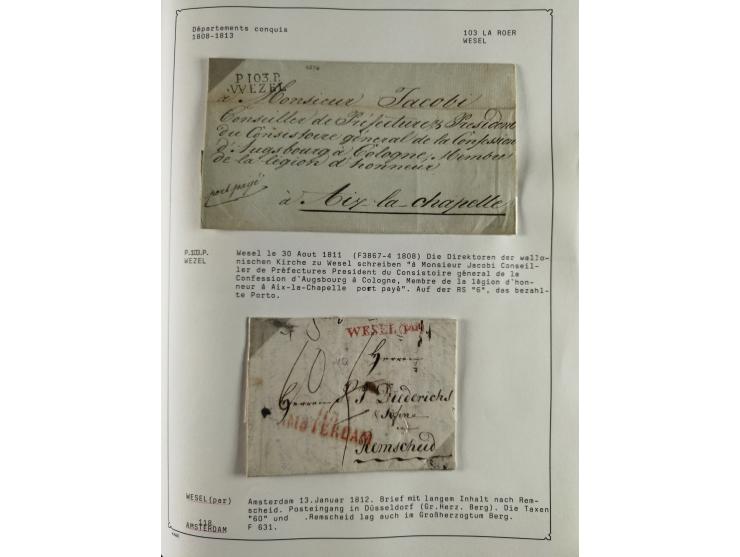 Départements conquis
1808-1813
103 LA ROER
WESEL
P.103.P.
WEZEL
à Monsieur Jacobi
Conseiller de Préfecture, & President
du Consistoire général de la Confession
d'Augsbourg à Cologne, Membre
de la légion d'honneur
port payé
à Aix-la-chapelle
P.103.P.
WEZEL
Wesel le 30 Aout 1811 (F3867-4 1808) Die Direktoren der wallo-
nischen Kirche zu Wesel schreiben "à Monsieur Jacobi Conseil-
ler de Préfectures President du Consistoire géneral de la
Confession d'Augsbourg à Cologne, Membre de la légion d'hon-
neur à Aix-la-Chapelle port payê". Auf der RS "6", das bezahl-
te Porto.
WESEL (par)
Herrn
Herren P. J. Diederichs
& Sohn
in
118
AMSTERDAM
Remscheid
WESEL(par)
118
AMSTERDAM
Amsterdam 13.Januar 1812. Brief mit langem Inhalt nach Rem-
scheid. Posteingang in Düsseldorf (Gr.Herz. Berg). Die Taxen
"60" und .Remscheid lag auch im Großherzogtum Berg.
F 631.